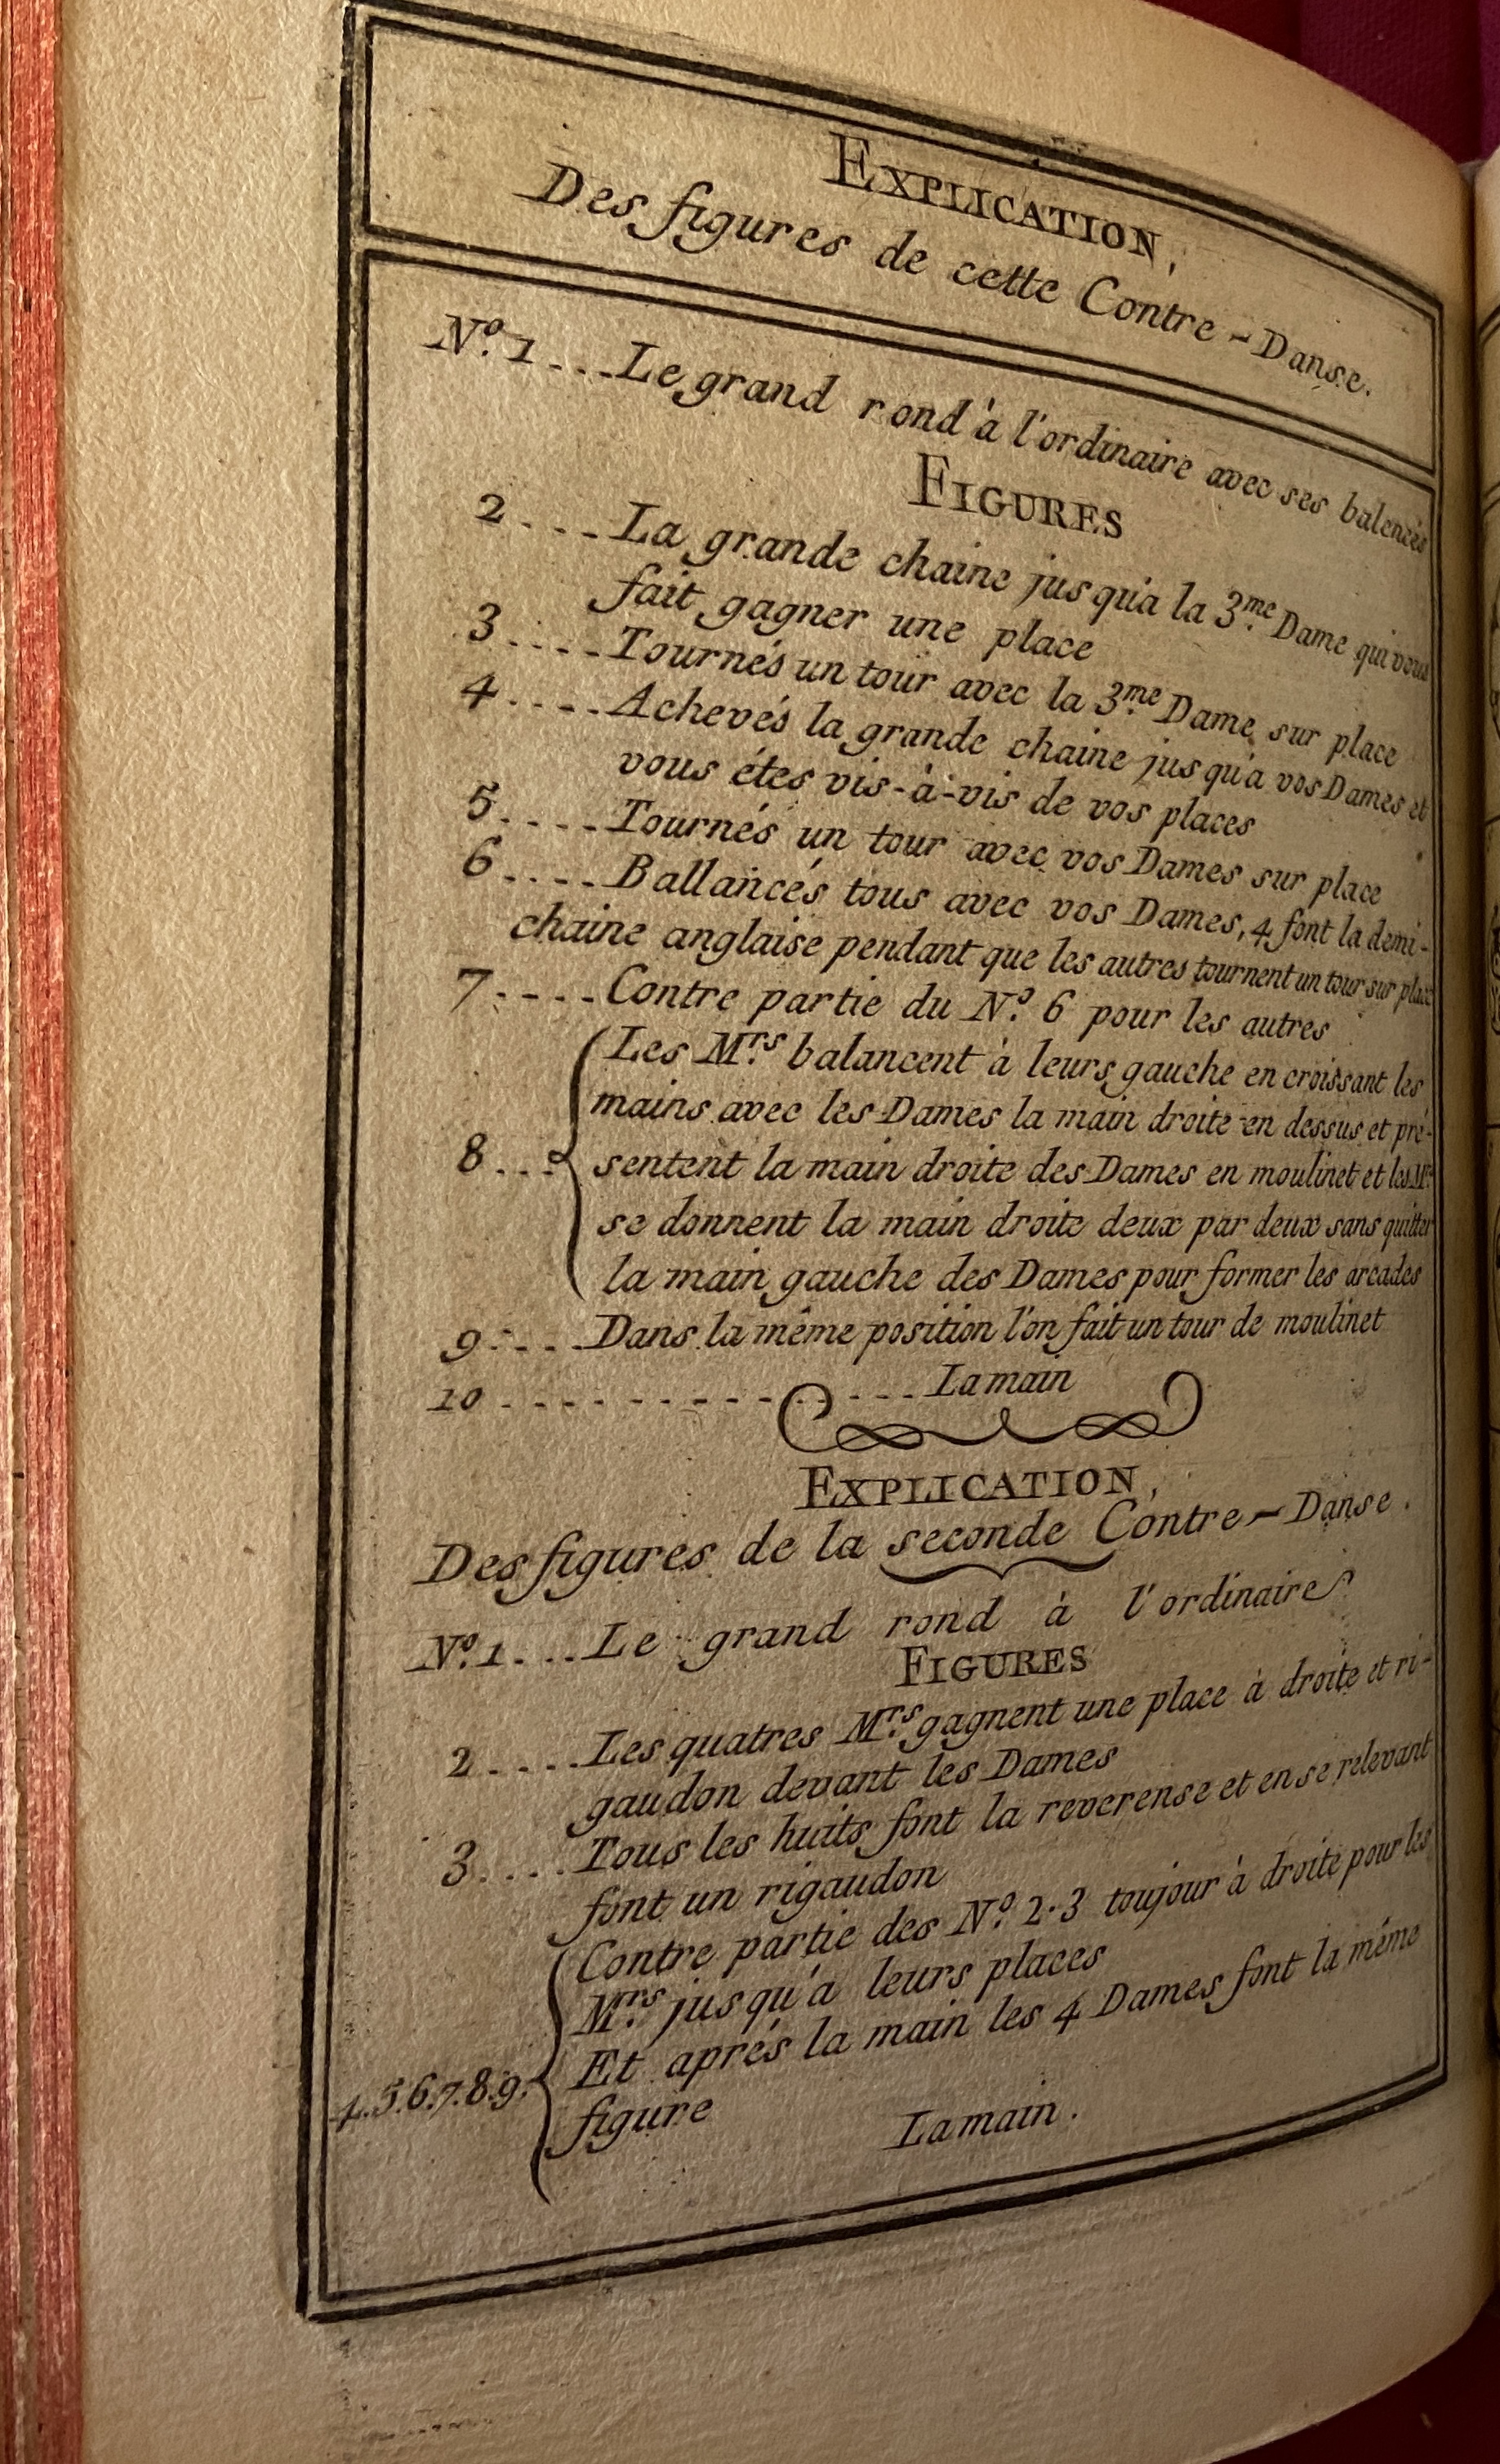 EXPLICATION,
Des figures de cette Contre-Danse.
No. 1... Le grand rond à l'ordinaire avec ses balencés
FIGURES
2.... La grande chaine jusqu'a la 3.me Dame qui vous
fait gagner une place
3.... Tournés un tour avec la 3.me Dame sur place
4.... Achevés la grande chaine jusqu'a vos Dames et
vous étes vis-à-vis de vos places
5.... Tournés un tour avec vos Dames sur place
6.... Ballancés tous avec vos Dames, 4 font la demi-
chaine anglaise pendant que les autres tournent un tour sur place
7.... Contre partie du No. 6 pour les autres
Les M.rs balancent à leurs gauche en croissant les
mains avec les Dames la main droite en dessus et pré-
8... sentent la main droite des Dames en moulinet et les M.rs
se donnent la main droite deux par deux sans quitter
la main gauche des Dames pour former les arcades
9.... Dans la même position l'on fait un tour de moulinet
10............. La main
EXPLICATION,
Des figures de la seconde Contre-Danse.
No. 1... Le grand rond à l'ordinaire
FIGURES
2.... Les quatres M.rs gagnent une place à droite et ri-
gaudon devant les Dames
3.... Tous les huits font la reverense et en se relevant
font un rigaudon
Contre partie des No. 2.3 toujour à droite pour les
M.rs jusqu'a leurs places
Et aprés la main les 4 Dames font la même
4.5.6.7.8.9. figure
La main.